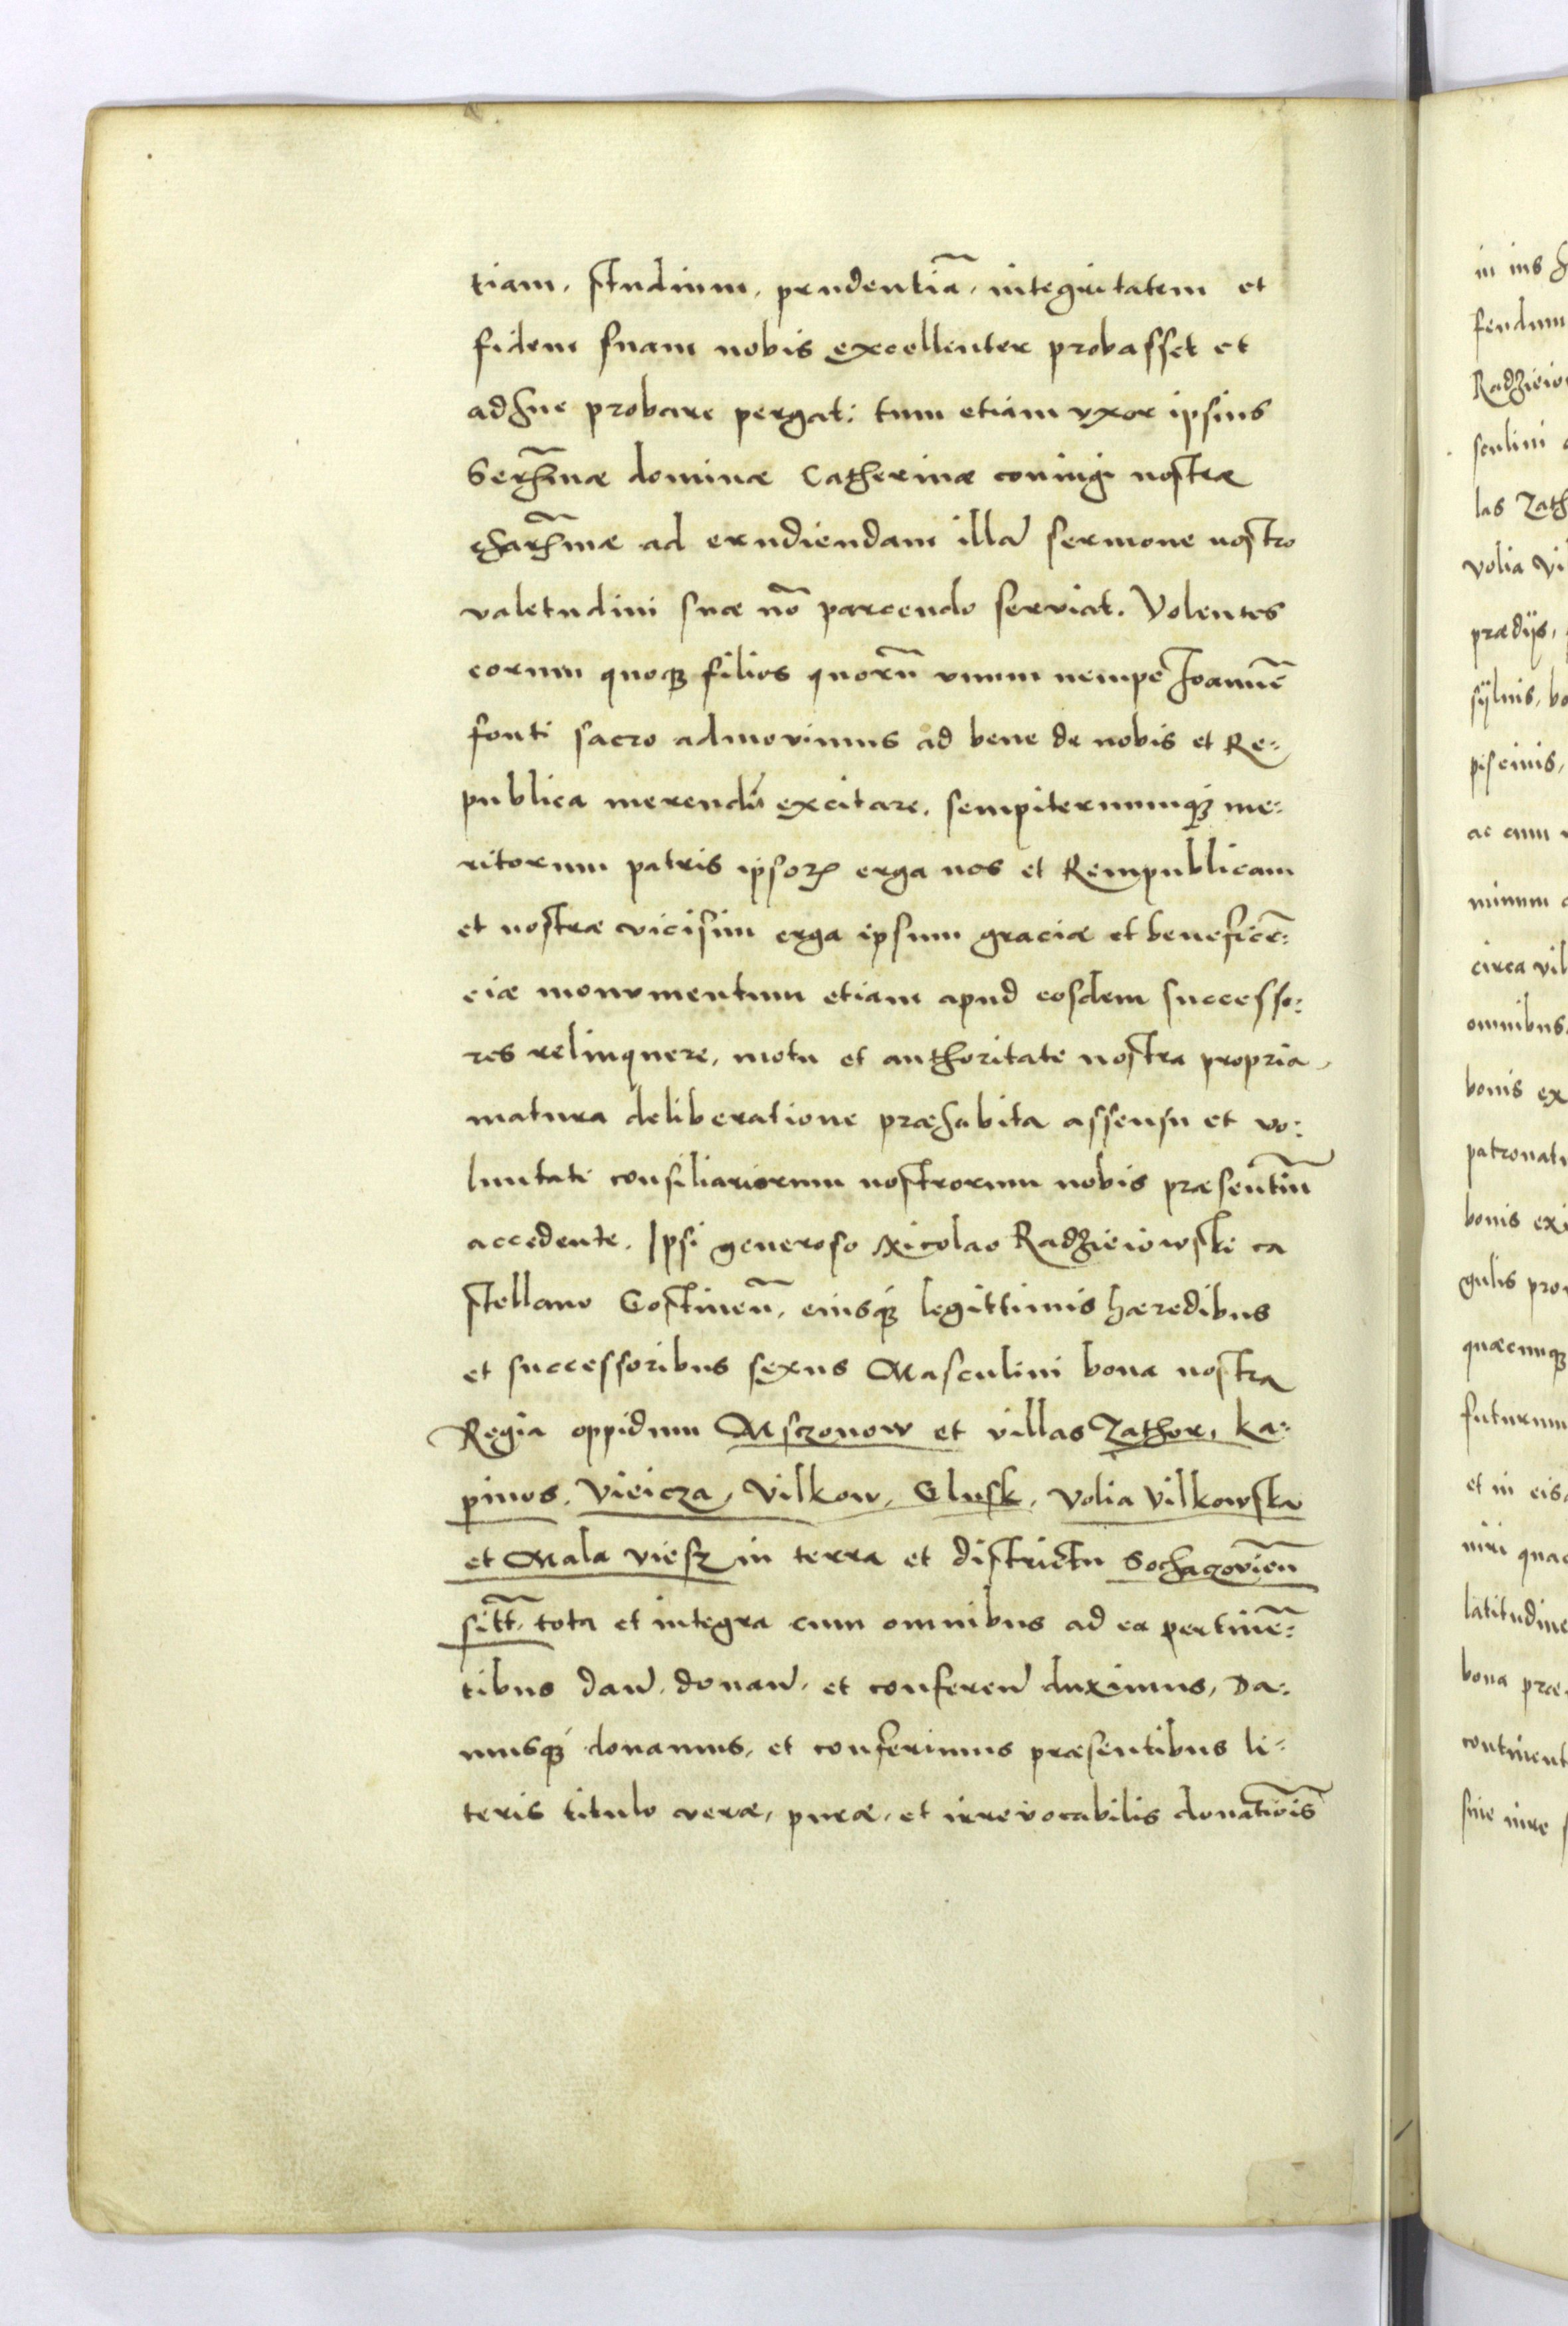 tiam, studium, prudentiã, integritatem et
fidem suam nobis excellenter probasset et
adhuc probare pergat: tum etiam vxor ipsius
Serh̃mæ dominæ Catherinæ coniugi nostræ
charh̃mæ ad erudiendam illã sermone nostro
valetudini suæ nõ parcendo serviat. Volentes
eorum quoqꝫ filios quorũ vnum nempe Joannẽ
fonti sacro admovimus ad bene de nobis et Re-
publica merendũ excitare, sempiternumqꝫ me-
ritorum patris ipsoꝝ erga nos et Rempublicam
et nostræ vicisim erga ipsum graciæ et beneficẽ-
ciæ monvmentum etiam apud eosdem successo-
res relinquere, motu et authoritate nostra propria,
matura deliberatione præhabita assensu et vo-
luntati consiliariorum nostrorum nobis præsentiũ
accedente. Ipsi generoso Nicolao Radzieiowski ca
stellano Gostineñ, eiusqꝫ legittimis hæredibus
et successoribus sexus Masculini bona nostra
Regia oppidum Msczonow et villas Zathor, Ka-
pinos, Vieicza, Vilkow, Glusk, Volia Vilkowska
et Mala viesz in terra et districtu Sochaczovieñ
sitt̃, tota et integra cum omnibus ad ea pertinẽ-
tibus dañ, donañ, et confereñ duximus, Da-
musqꝫ donamus, et conferimus præsentibus li-
teris titulo veræ, puræ, et irrevocabilis donatiõis
in ius
feudum
Radzieio
sculini
las Zath
volia Vi
prædijs,
syluis, bo
piscinis,
ac cum
minum
circa vil
omnibus
bonis ex
patronatu
bonis exi
gulis pro
quæcunqꝫ
futurum
et in eis
niri quae
latitudine
bona præ
continent
sine iure